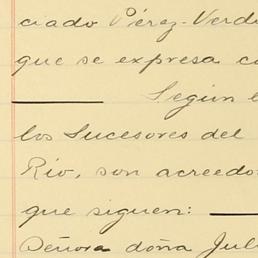 ciado Pérez-Verd
que se expresa c
Según e
los Sucesores del
Río, son acreedo
que siguen:
Señora doña Jul